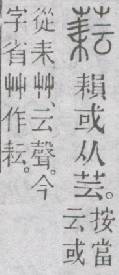 𦔐𦓷或从芸。按當
云或
從耒艸、云聲。今
字省艸作耘。